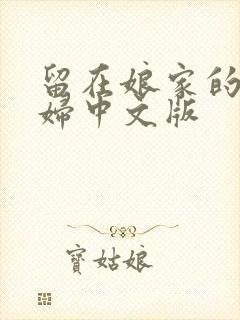 留在娘家的
婦中文版
寶姑娘